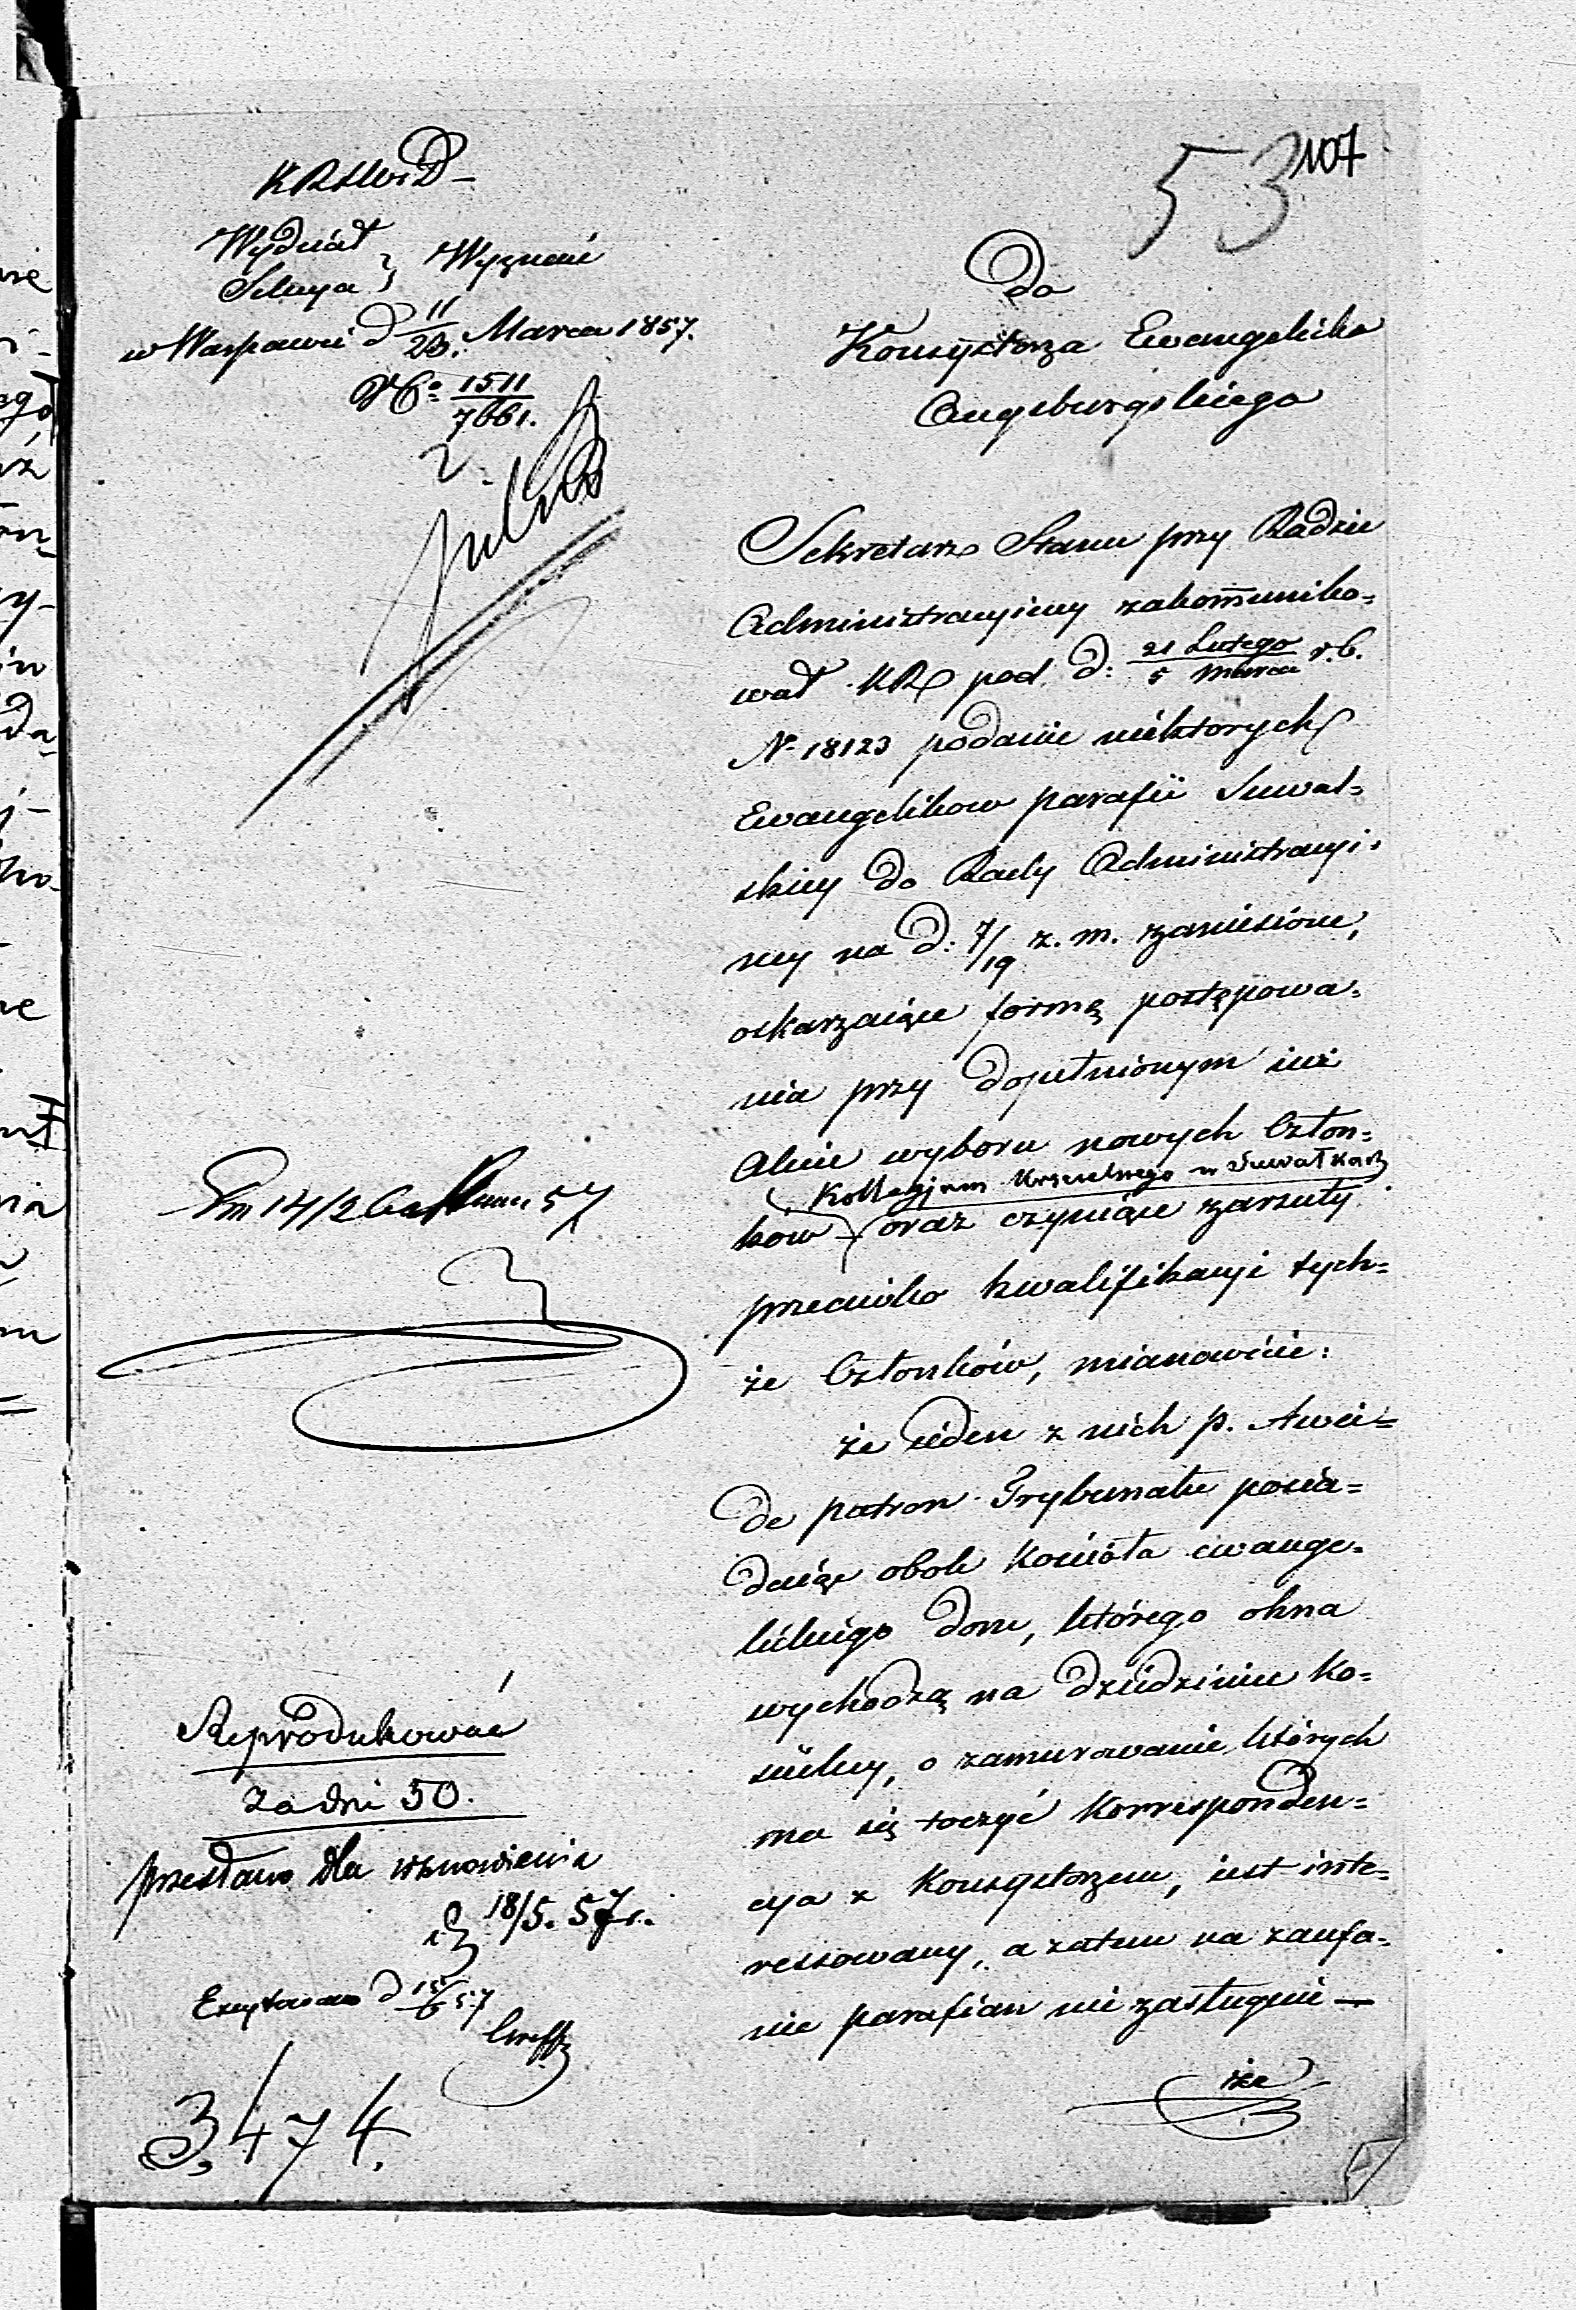 53 107
KRSWiD
Wydział
Sekcya } Wyznań
w Warszawie d 11/23. Marca 1857.
No 1511/7661.
Do
Konsystorza Ewangelicko
Augsburgskiego
Sekretarz Stanu przy Radzie
Administracyjney zakom̄uniko=
wał KR pod d: 21 Lutego/5 Marca r.b.
N 18123 podanie niektorych
Ewangelikow parafii Suwal=
skiey do Rady Administracyi=
ney na d: 7/19 z. m. zaniesione,
oskarzaiące formę postępowa=
nia przy dopełnionym
Akcie wyboru nowych Człon=
Kollegjum Kościelnego w Suwałkach
ków oraz czyniące zarzuty
przeciwko kwalifikacyi tych=
że Członków, mianowicie:
że ieden z nich p. Awei=
de patron Trybunału posia=
daiąc obok Kościoła ewange=
lickiego dom, którego okna
wychodzą na dziedziniec Ko=
ścielny, o zamurowanie których
ma się toczyć Korresponden=
cya z Konsystorzem, iest inte=
ressowany, a zatem na zaufa=
nie parafian nie zasługuie —
że
57
Reprodukować
za dni 50.
przesłano dla wznowienia
18/5. 57r.
d 15/6 57
3,474.